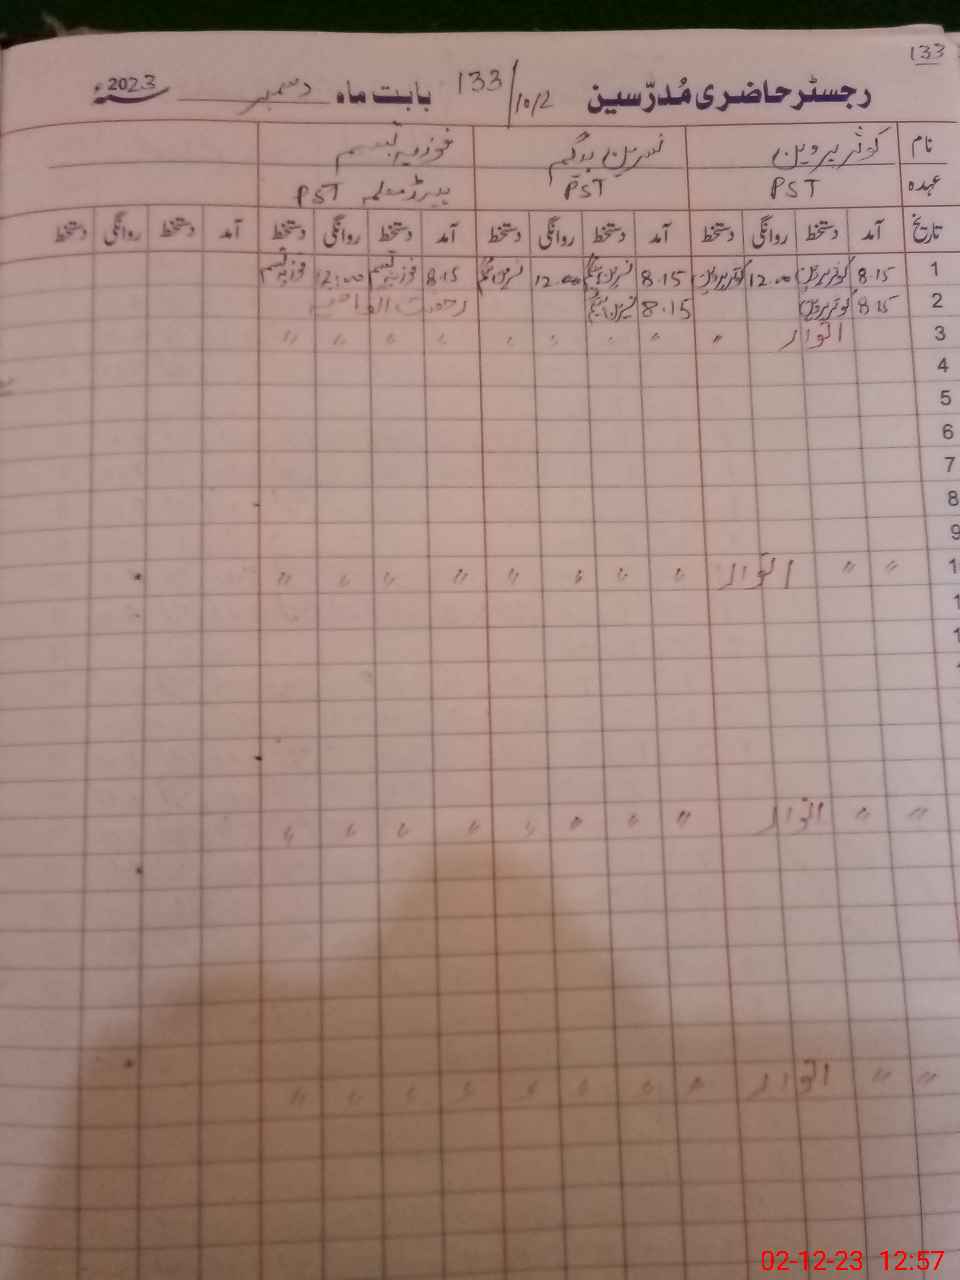 133
رجسٹر حاضری مُدرّسین 133/10/2 بابت ماہ دسمبر 2023ء
نام کوثر پروین نسرین بیگم فوزیہ تبسم
عہدہ PST PST ہیڈ معلمہ PST
تاریخ آمد دستخط روانگی دستخط آمد دستخط روانگی دستخط آمد دستخط روانگی دستخط آمد دستخط روانگی دستخط
1 8.15 کوثر پروین 12.00 کوثر پروین 8.15 نسرین بیگم 12.00 نسرین بیگم 8.15 فوزیہ تبسم 12:00 فوزیہ تبسم
2 8.15 کوثر پروین 8.15 نسرین بیگم رخصت
3 اتوار 〃 〃 〃 〃 〃 〃 〃 〃 〃
4
5
6
7
8
9
1 〃 〃 اتوار 〃 〃 〃 〃 〃 〃 〃 〃
1
1
〃 〃 اتوار 〃 〃 〃 〃 〃 〃 〃 〃
〃 〃 اتوار 〃 〃 〃 〃 〃 〃 〃 〃
02-12-23 12:57